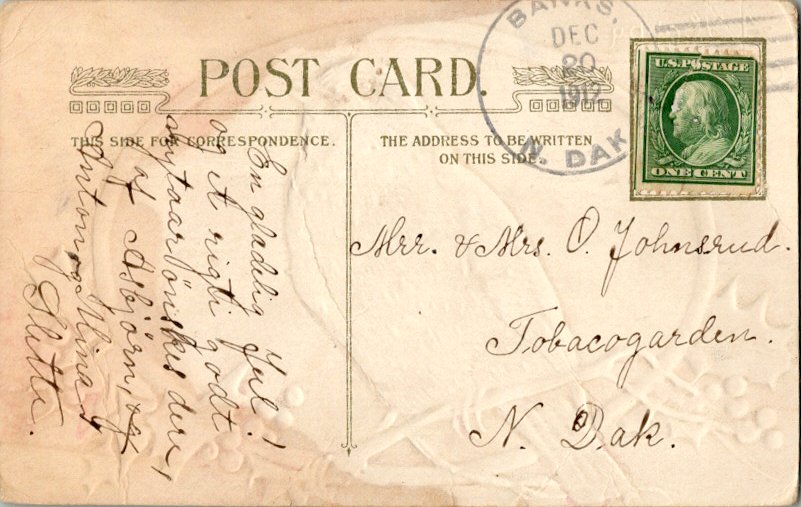 POST CARD.
THIS SIDE FOR CORRESPONDENCE.
THE ADDRESS TO BE WRITTEN
ON THIS SIDE.
BANKS,
DEC
20
1912
N. DAK
U.S. POSTAGE
ONE CENT
Mrr. & Mrs. O. Johnsrud.
Tobacogarden.
N. Dak.
En gladelig Jul!
og et rigti godt
nytaar önskes dere,
af Asbjörn, og
Anton og Mina
Slette.